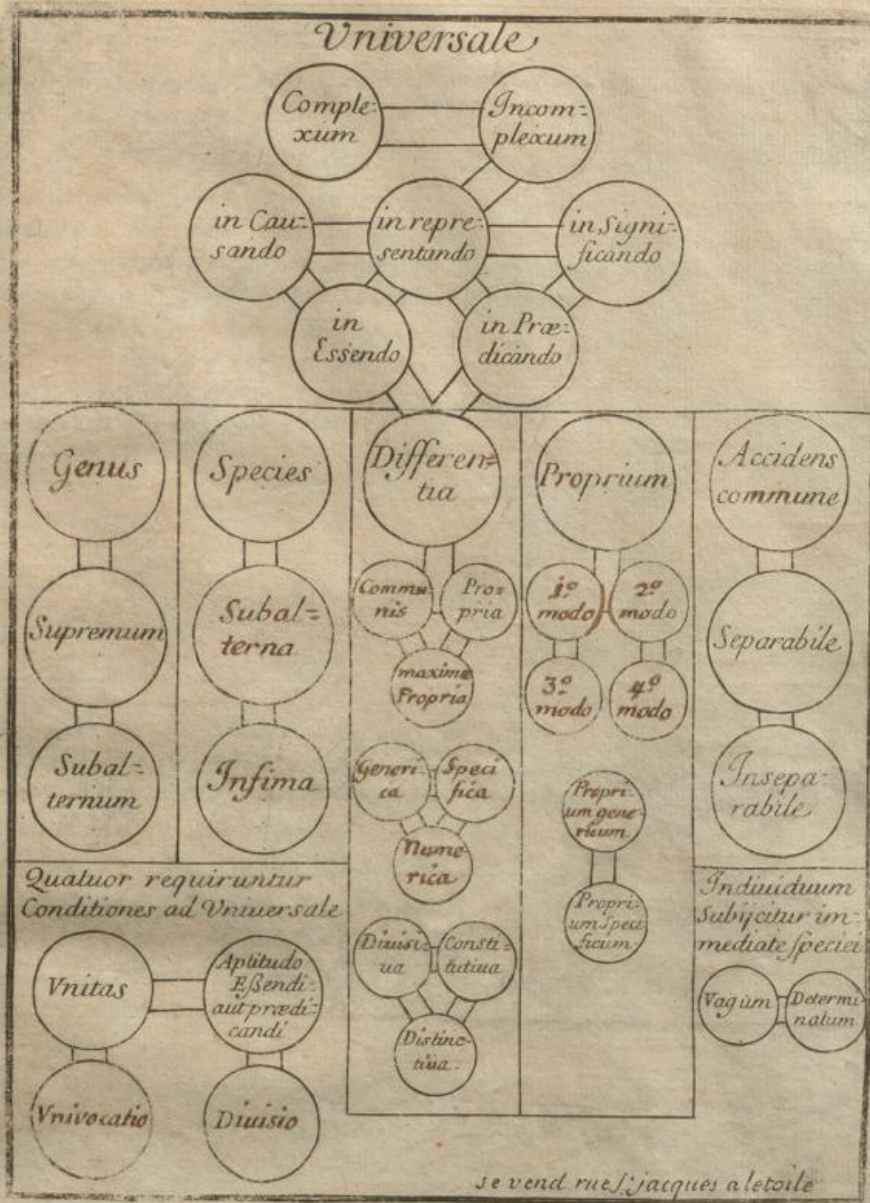 Vniversale
Comple=
xum
Incom=
plexum
in Cau=
sando
in repre=
sentando
in Signi=
ficando
in
Essendo
in Præ=
dicando
Genus
Supremum
Subal=
ternum
Species
Subal=
terna
Infima
Differen=
tia
Commu
nis
Pro=
pria
maxime
Propria
Generi
ca
Speci
fica
Nume
rica
Diuisi
ua
Consti=
tutiua
Distinc=
tiua.
Proprium
1.º
modo
2.º
modo
3.º
modo
4.º
modo
Propri
um gene
ricum
Propri=
um Speci
ficum
Accidens
commune
Separabile
Insepa=
rabile
Quatuor requiruntur
Conditiones ad Vniuersale
Vnitas
Aptitudo
Eſſendi
aut prædi
candi
Vnivocatio
Diuisio
Indiuiduum
Subijcitur im=
mediate ſpeciei
Vagum
Determi
natum
se vend rue ſ: jacques a letoile